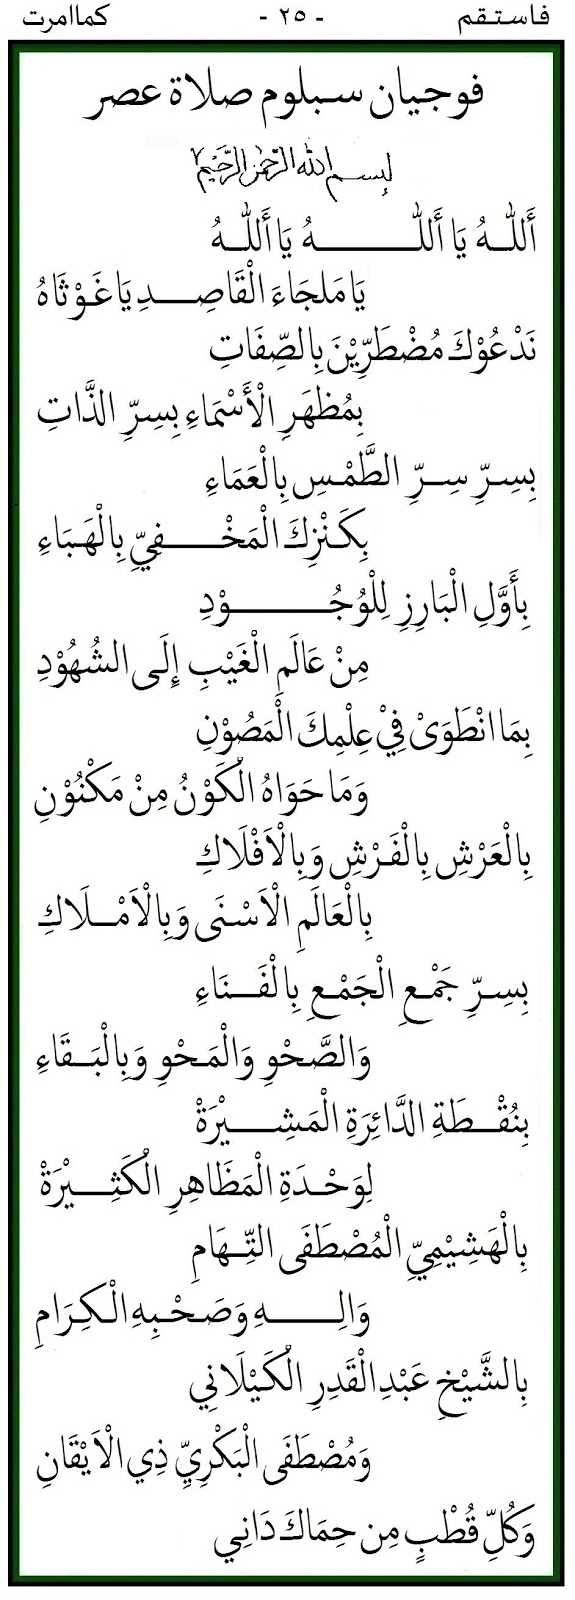 فاستقم - ٢٥ - كماامرت
فوجيان سبلوم صلاة عصر
بسم الله الرحمن الرحيم
أَللّٰهُ يَا أَللّٰهُ يَا أَللّٰهُ
يَا مَلجَاءَ الْقَاصِدِ يَا غَوْثَاهُ
نَدْعُوْكَ مُضْطَرِّيْنَ بِالصِّفَاتِ
بِمُظهَرِ الْأَسْمَاءِ بِسِرِّ الذَّاتِ
بِسِرِّ سِرِّ الطَّمْسِ بِالْعَمَاءِ
بِكَنْزِكَ الْمَخْفِيِّ بِالْهَبَاءِ
بِأَوَّلِ الْبَارِزِ لِلْوُجُوْدِ
مِنْ عَالَمِ الْغَيْبِ إِلَى الشُهُوْدِ
بِمَا انْطَوَىْ فِيْ عِلْمِكَ الْمَصُوْنِ
وَمَا حَوَاهُ الْكَوْنُ مِنْ مَكْنُوْنِ
بِالْعَرْشِ بِالْفَرْشِ وَبِالْاَفْلَاكِ
بِالْعَالَمِ الْاَسْنَى وَبِالْاَمْلَاكِ
بِسِرِّ جَمْعِ الْجَمْعِ بِالْفَنَاءِ
وَالصَّحْوِ وَالْمَحْوِ وَبِالْبَقَاءِ
بِنُقْطَةِ الدَّائِرَةِ الْمَشِيْرَةْ
لِوَحْدَةِ الْمَظَاهِرِ الْكَثِيْرَةْ
بِالْهَشِيْمِيِّ الْمُصْطَفَى التِّهَامِ
وَالِهِ وَصَحْبِهِ الْكِرَامِ
بِالشَّيْخِ عَبْدِ الْقَدِرِ الْكَيْلَانِي
وَمُصْطَفَى الْبَكْرِيِّ ذِي الْاَيْقَانِ
وَكُلِّ قُطْبٍ مِن حِمَاكَ دَانِي